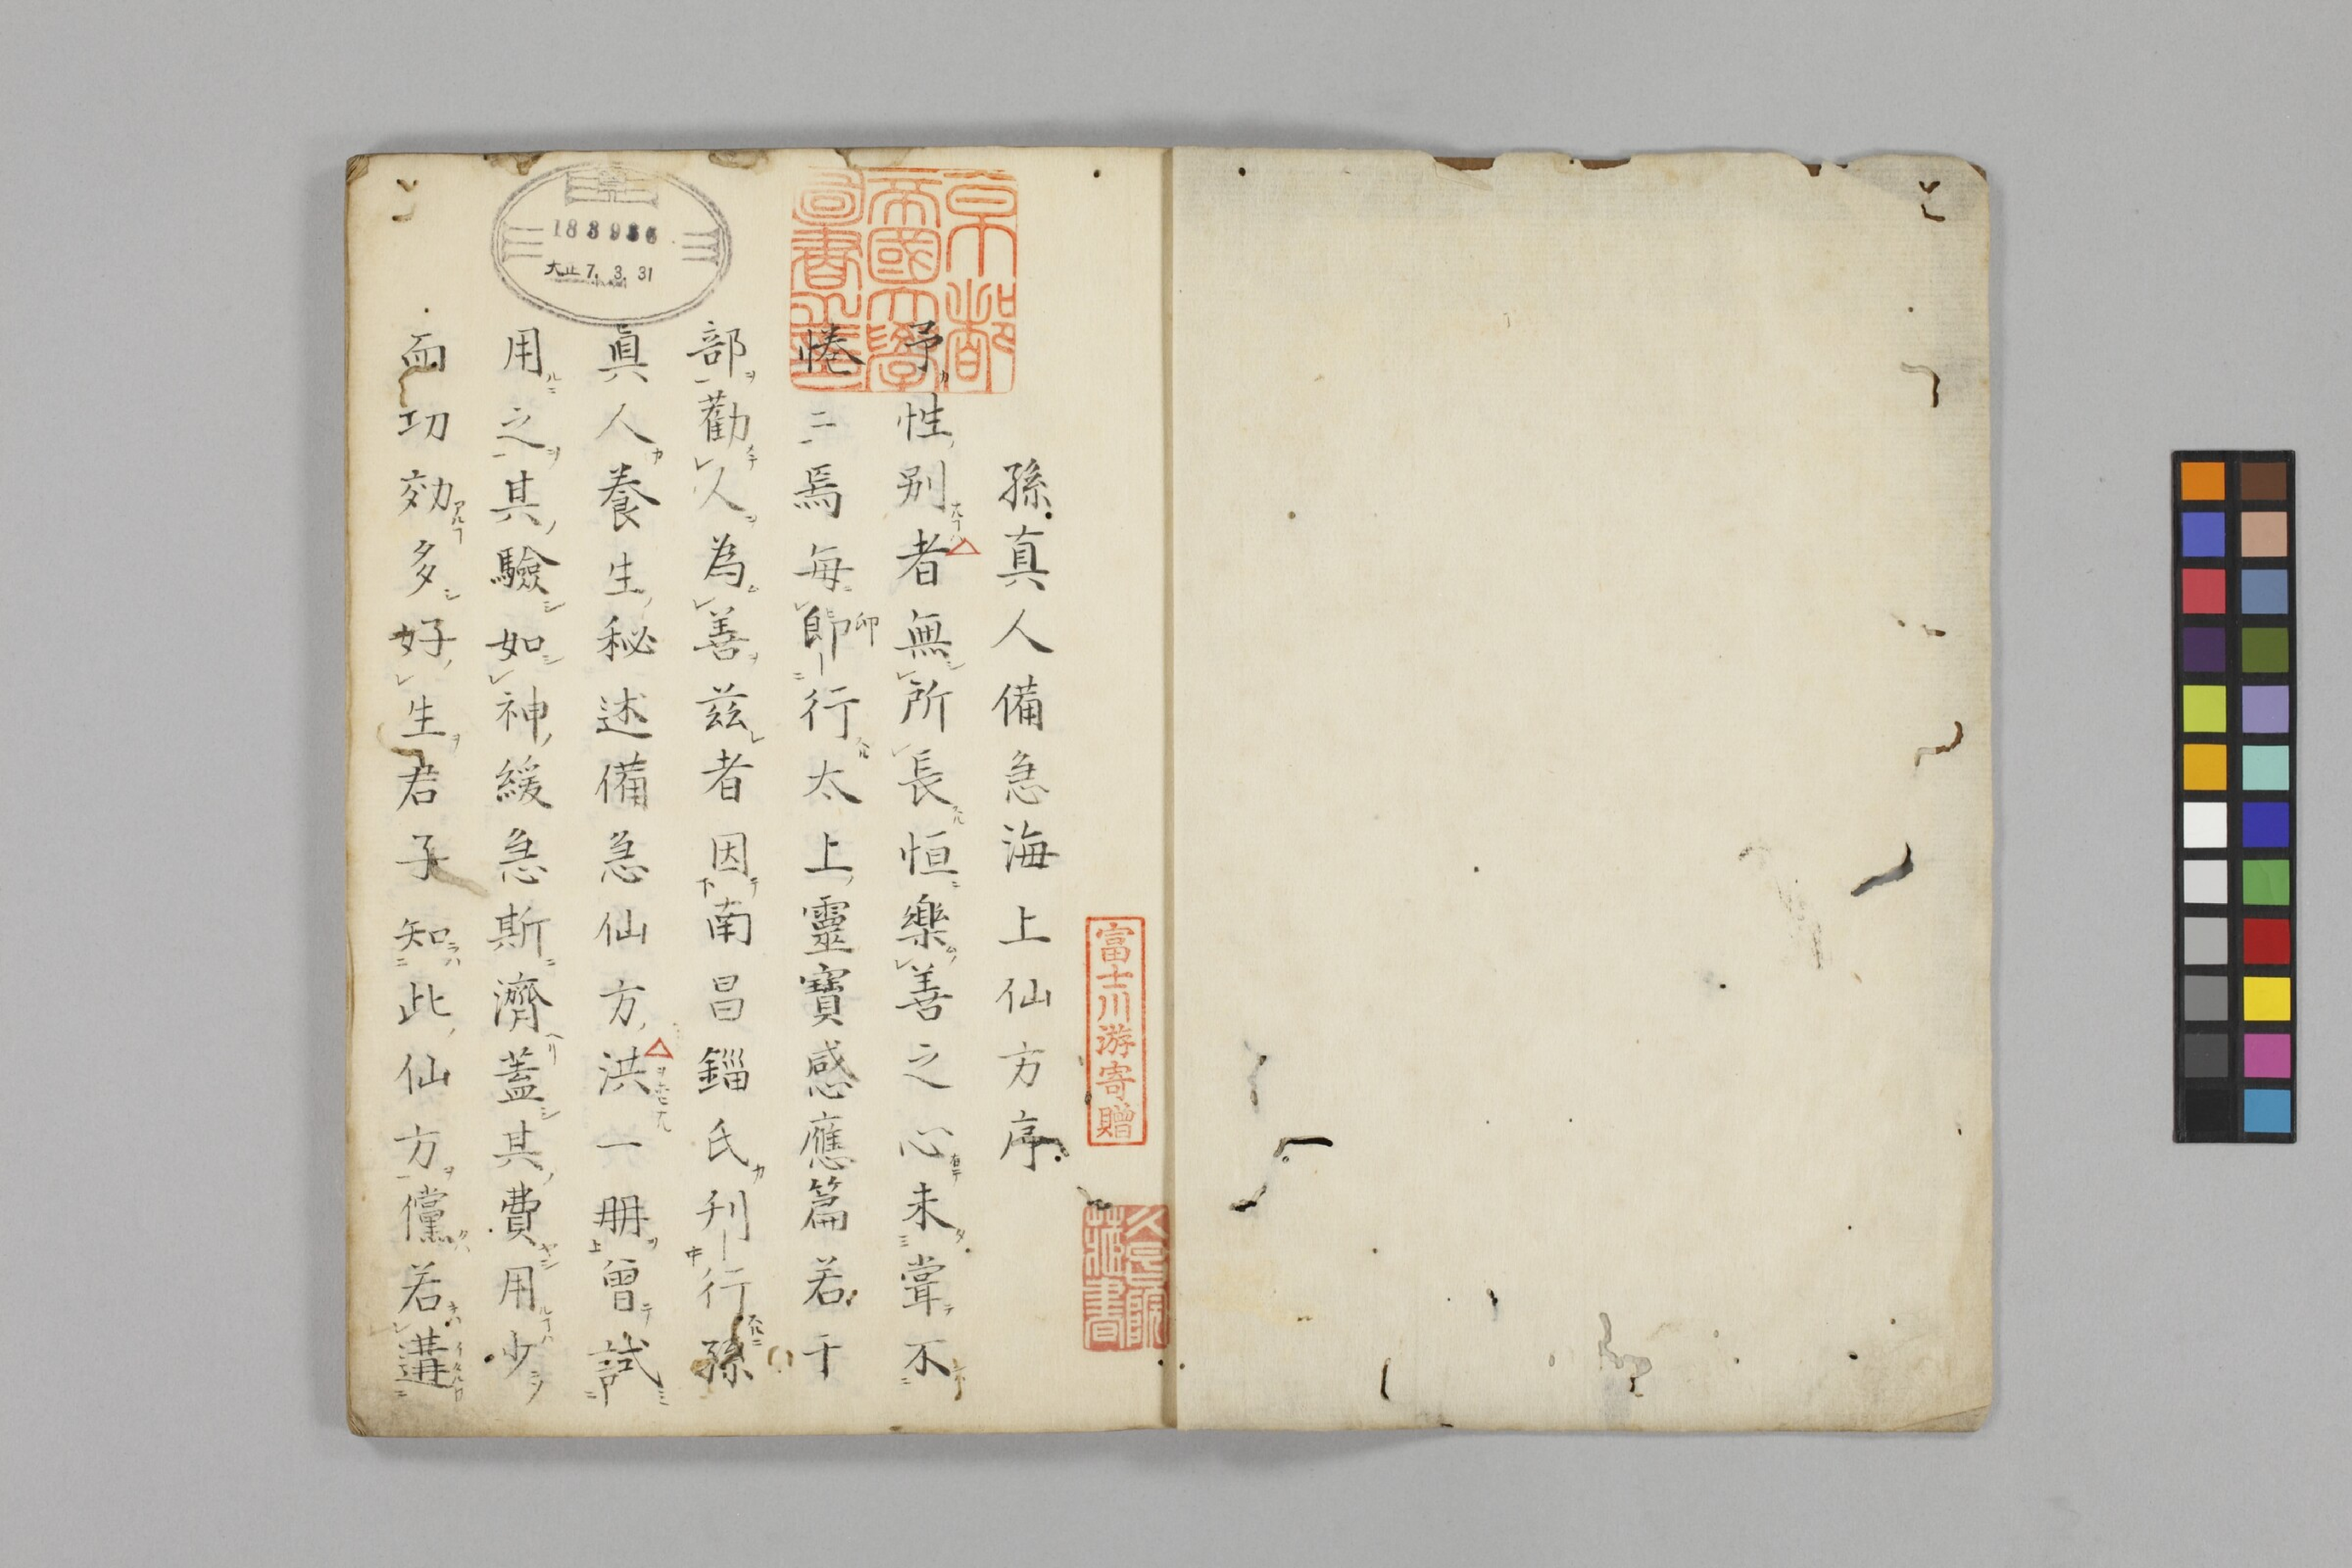 孫真人備急海上仙方序
予性別者無所長恒樂善之心未甞不
惓二焉毎節行太上靈寶感應篇若于
印
部勸人為善茲者因南昌錙氏刊行孫
眞人養生秘述備急仙方洪一册曾試
用之其驗如神緩急斯濟蓋其費用少
而功効多好生君子知此仙方儻若遘
京都帝國大學圖書之印
183936
大正7.3.31
富士川游寄贈